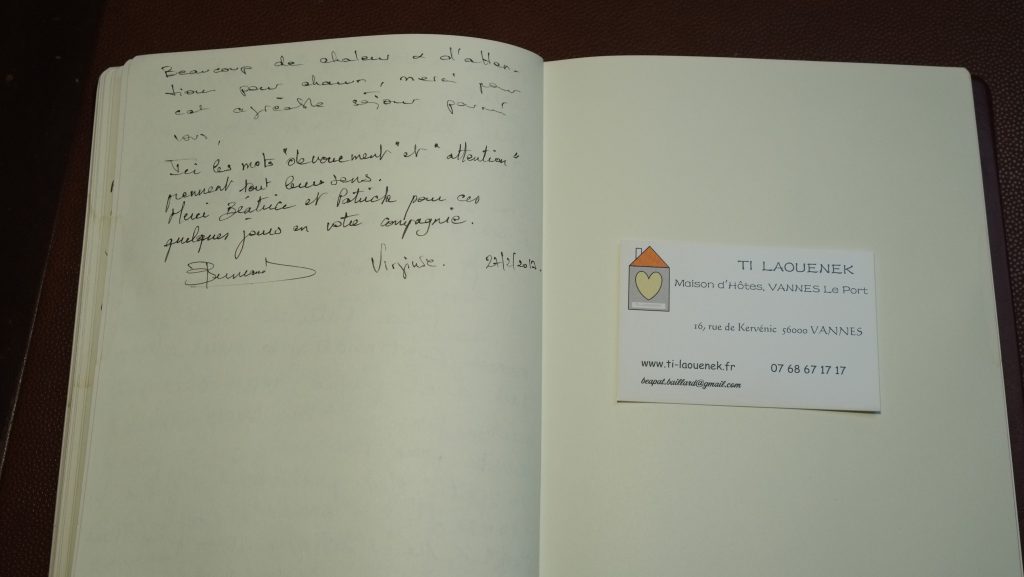 Beaucoup de chaleur & d'atten-
tion pour chacun, merci pour
cet agréable séjour parmi
vous,
Ici les mots "devouement" et "attention"
prennent tout leur sens.
Merci Béatrice et Patrick pour ces
quelques jours en votre compagnie.
Virginie. 22/2/2017.
TI LAOUENEK
Maison d'Hôtes, VANNES Le Port
16, rue de Kervénic 56000 VANNES
www.ti-laouenek.fr 07 68 67 17 17
beapat.baillard@gmail.com